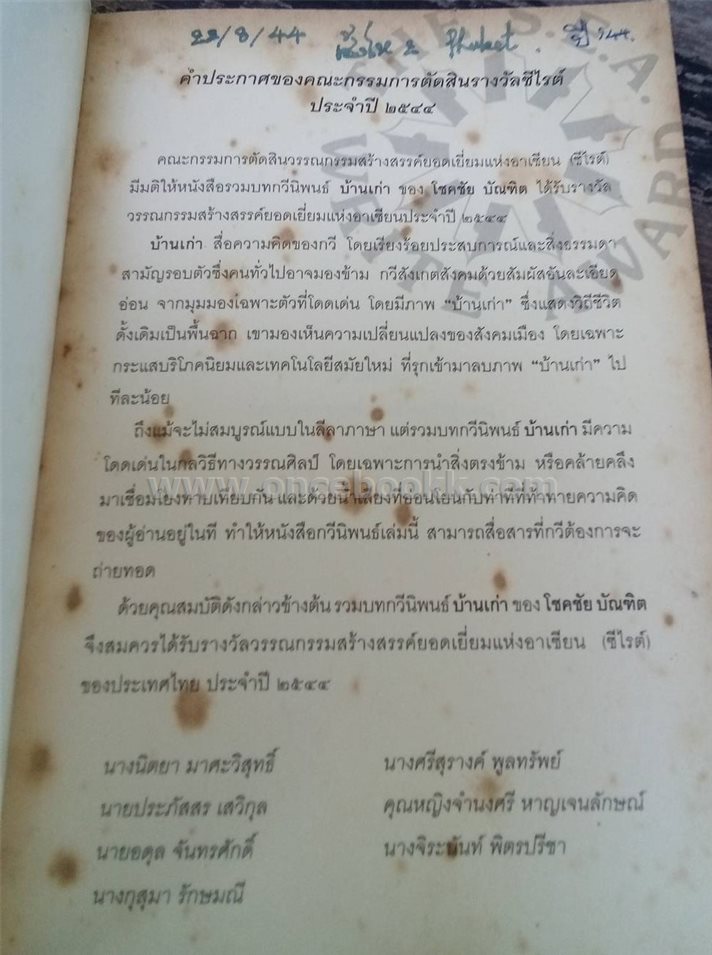 22/8/44 Phuket ปี '44.
คำประกาศของคณะกรรมการตัดสินรางวัลซีไรต์
ประจำปี ๒๕๔๔
THE S.E.A. WRITE AWARD
คณะกรรมการตัดสินวรรณกรรมสร้างสรรค์ยอดเยี่ยมแห่งอาเซียน (ซีไรต์)
มีมติให้หนังสือรวมบทกวีนิพนธ์ บ้านเก่า ของ โชคชัย บัณฑิต ได้รับรางวัล
วรรณกรรมสร้างสรรค์ยอดเยี่ยมแห่งอาเซียนประจำปี ๒๕๔๔
บ้านเก่า สื่อความคิดของกวี โดยเรียงร้อยประสบการณ์และสิ่งธรรมดา
สามัญรอบตัวซึ่งคนทั่วไปอาจมองข้าม กวีสังเกตสังคมด้วยสัมผัสอันละเอียด
อ่อน จากมุมมองเฉพาะตัวที่โดดเด่น โดยมีภาพ “บ้านเก่า” ซึ่งแสดงวิถีชีวิต
ดั้งเดิมเป็นพื้นฉาก เขามองเห็นความเปลี่ยนแปลงของสังคมเมือง โดยเฉพาะ
กระแสบริโภคนิยมและเทคโนโลยีสมัยใหม่ ที่รุกเข้ามาลบภาพ “บ้านเก่า” ไป
ทีละน้อย
ถึงแม้จะไม่สมบูรณ์แบบในลีลาภาษา แต่รวมบทกวีนิพนธ์ บ้านเก่า มีความ
โดดเด่นในกลวิธีทางวรรณศิลป์ โดยเฉพาะการนำสิ่งตรงข้าม หรือคล้ายคลึง
www.oncebookk.com
มาเชื่อมโยงทาบเทียบกัน และด้วยน้ำเสียงที่อ่อนโยนกับท่าทีที่ท้าทายความคิด
ของผู้อ่านอยู่ในที ทำให้หนังสือกวีนิพนธ์เล่มนี้ สามารถสื่อสารที่กวีต้องการจะ
ถ่ายทอด
ด้วยคุณสมบัติดังกล่าวข้างต้น รวมบทกวีนิพนธ์ บ้านเก่า ของ โชคชัย บัณฑิต
จึงสมควรได้รับรางวัลวรรณกรรมสร้างสรรค์ยอดเยี่ยมแห่งอาเซียน (ซีไรต์)
ของประเทศไทย ประจำปี ๒๕๔๔
นางนิตยา มาศะวิสุทธิ์ นางศรีสุรางค์ พูลทรัพย์
นายประภัสสร เสวิกุล คุณหญิงจำนงศรี หาญเจนลักษณ์
นายอดุล จันทรศักดิ์ นางจิระนันท์ พิตรปรีชา
นางกุสุมา รักษมณี